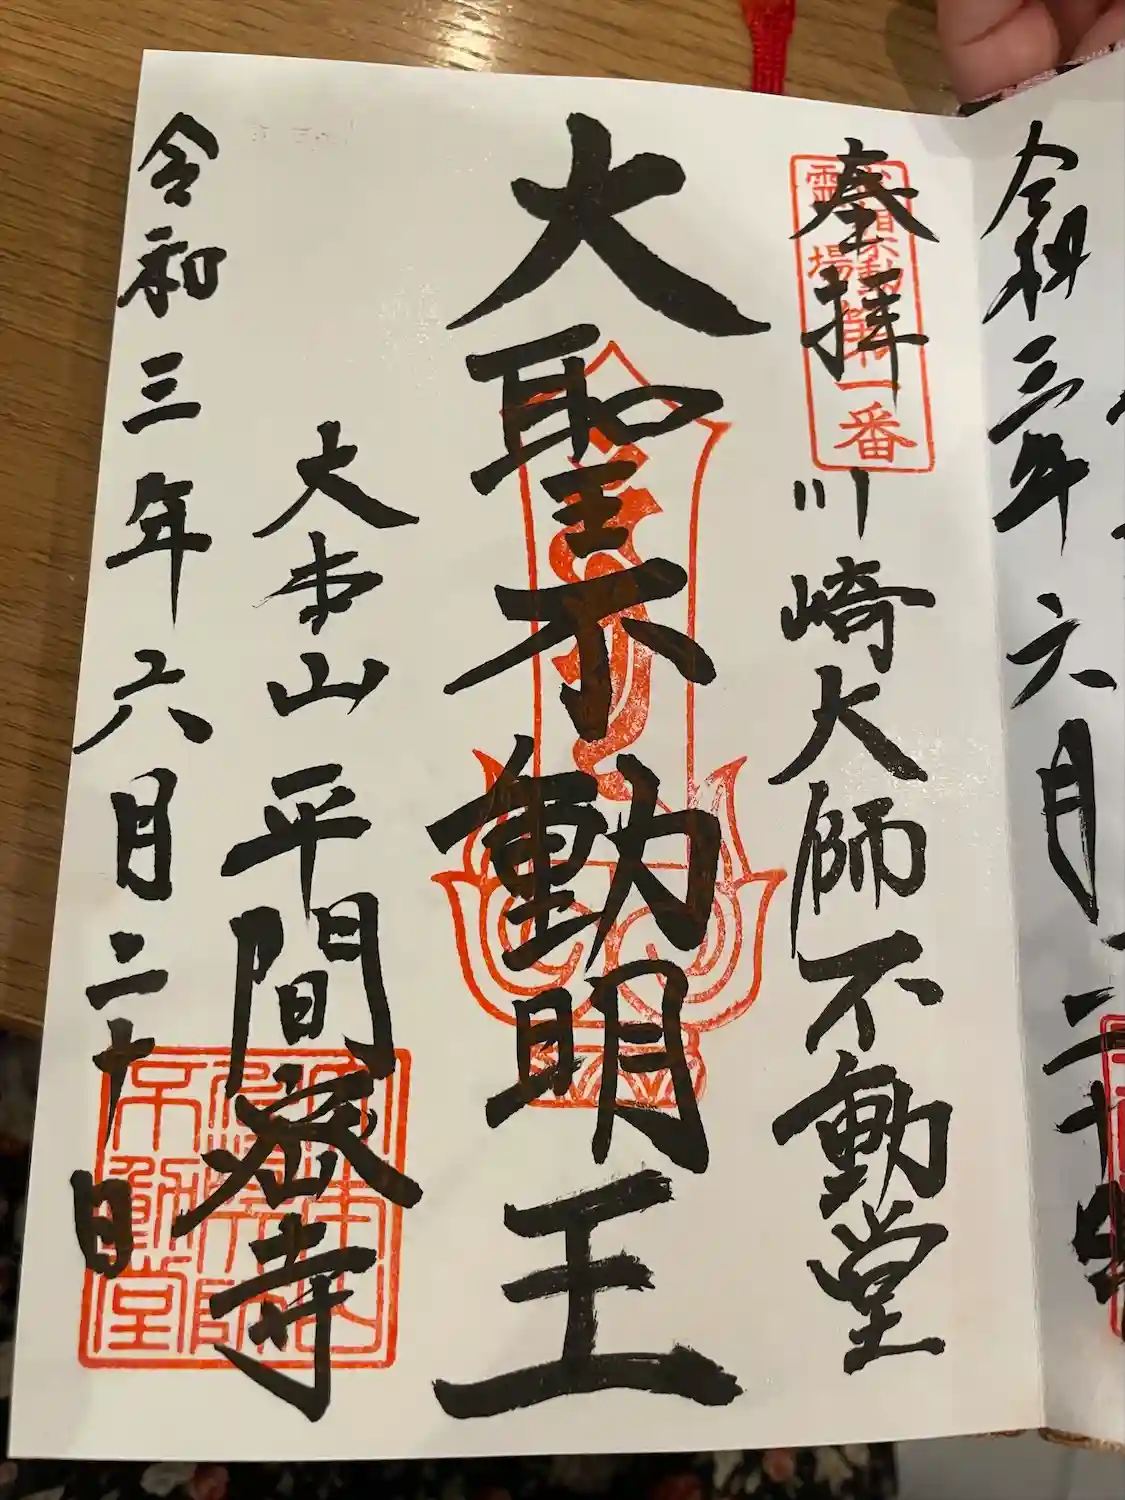 令和三年六月二十
奉拝
川崎大師不動堂
霊場
第一番
大聖不動明王
大本山平間寺
令和三年六月二十日
不動堂